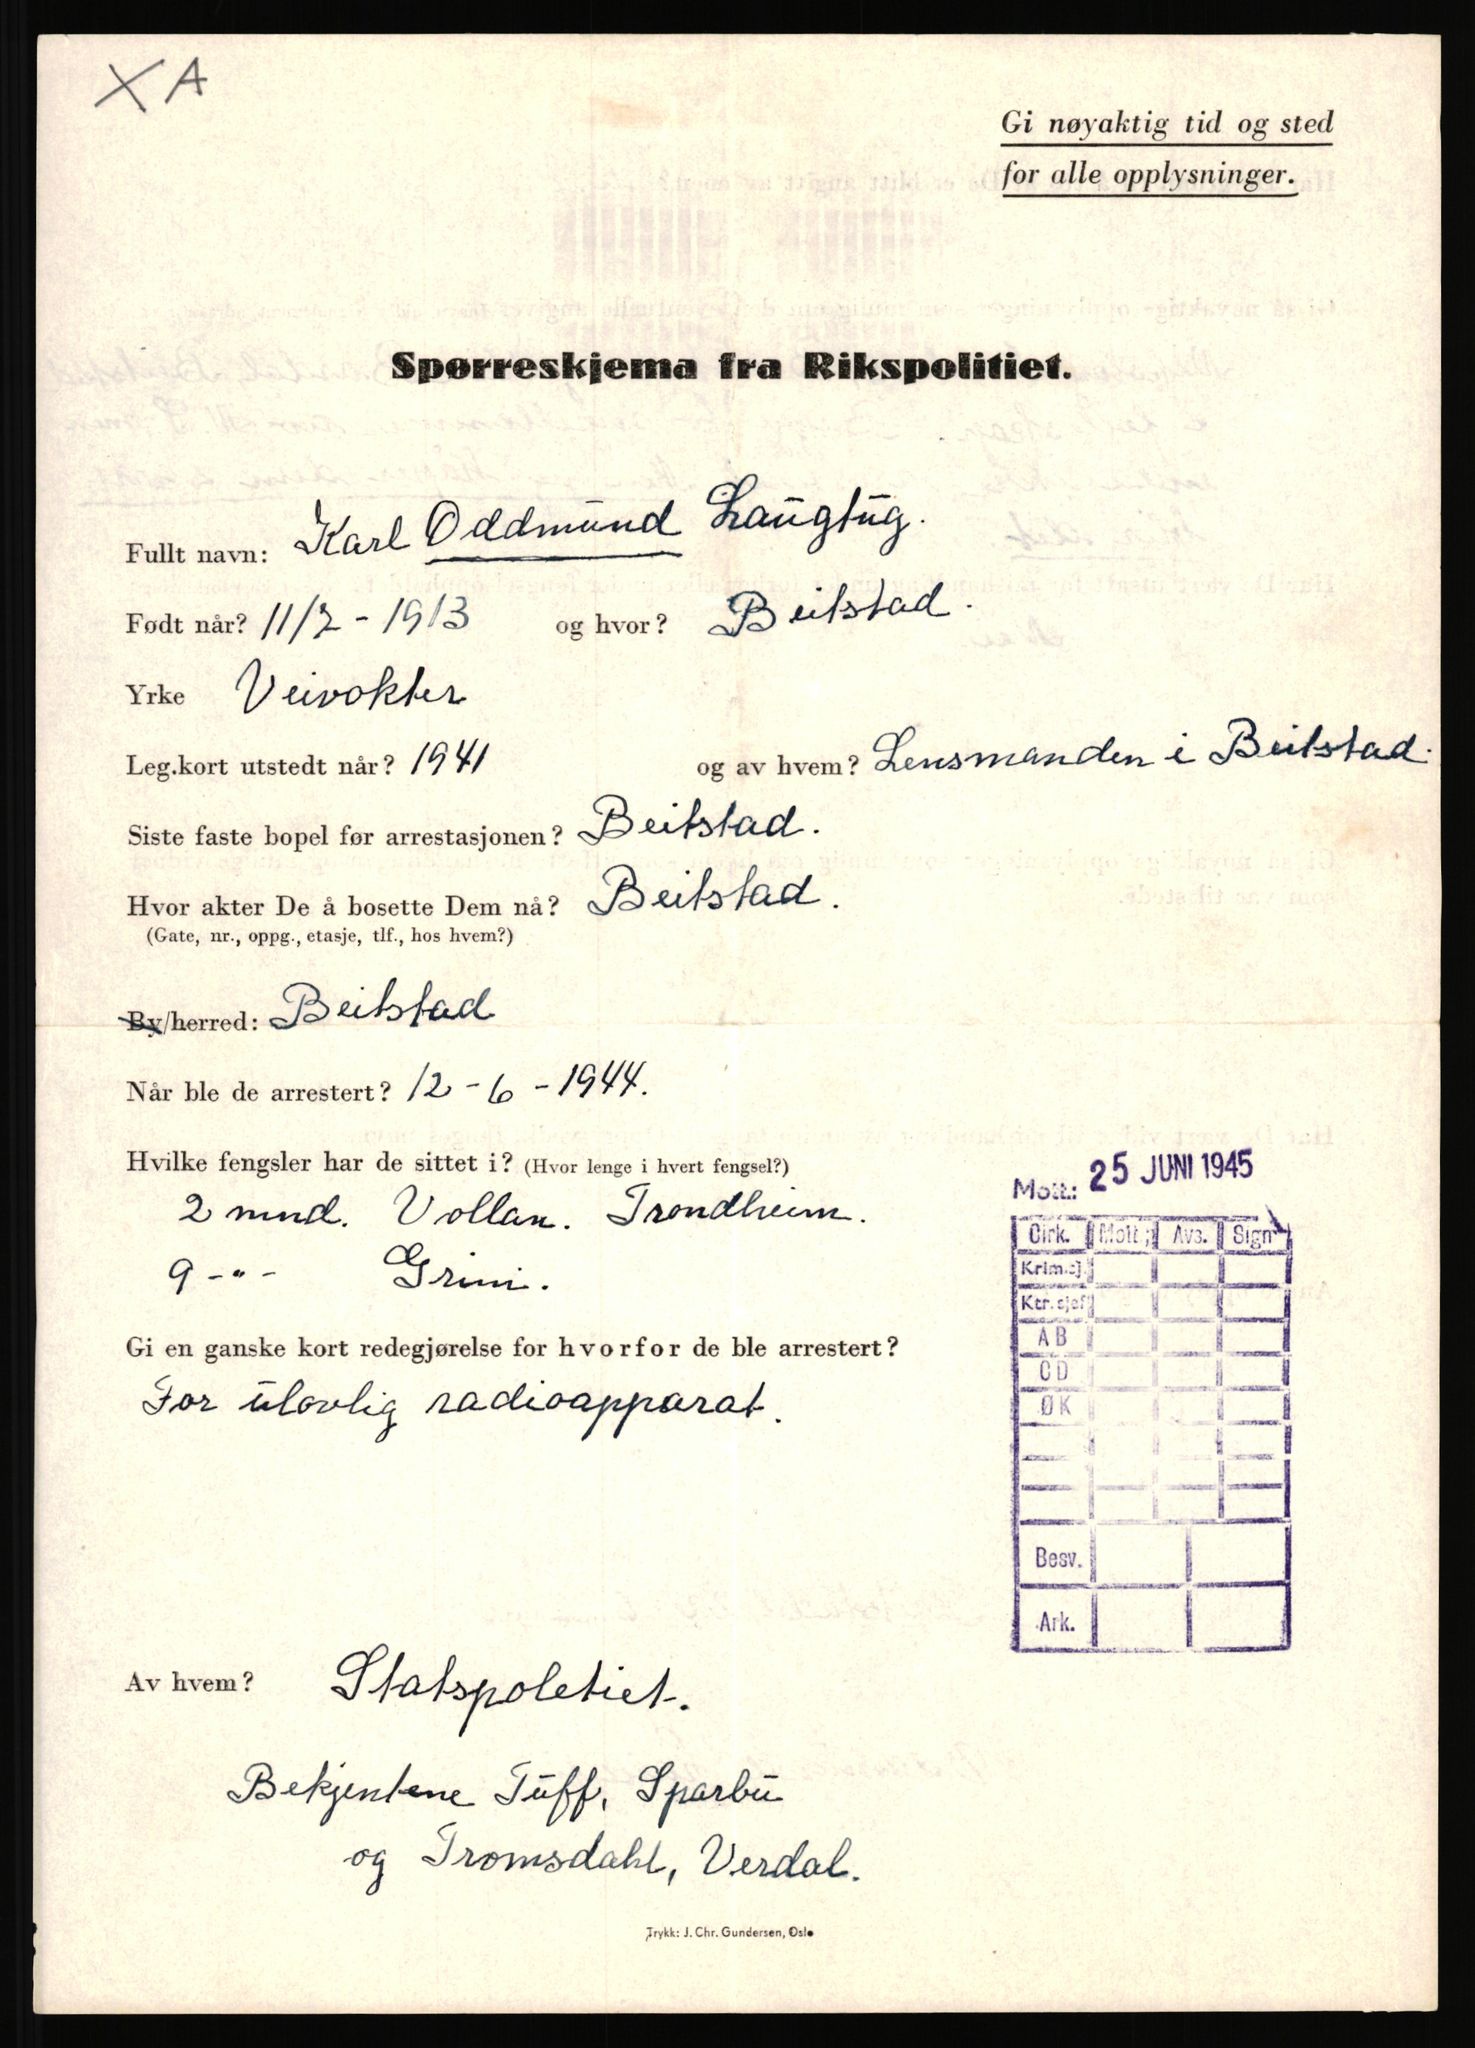 XA
Gi nøyaktig tid og sted
for alle opplysninger.
Spørreskjema fra Rikspolitiet.
Fullt navn: Karl Oddmund Laugtug.
Født når? 11/2 - 1913 og hvor? Beitstad.
Yrke Veivokter
Leg.kort utstedt når? 1941 og av hvem? Lensmanden i Beitstad.
Siste faste bopel før arrestasjonen? Beitstad.
Hvor akter De å bosette Dem nå? Beitstad.
(Gate, nr., oppg., etasje, tlf., hos hvem?)
By/herred: Beitstad
Når ble de arrestert? 12 - 6 - 1944.
Hvilke fengsler har de sittet i? (Hvor lenge i hvert fengsel?)
2 mnd. Vollan. Trondheim.
9 -"- Grini.
Mott.: 25 JUNI 1945
Cirk. Mott.; Avs. Sign
Krim.sj.
Ktr.sjef
AB
CD
ØK
Besv.
Ark.
Gi en ganske kort redegjørelse for hvorfor de ble arrestert?
For ulovlig radioapparat.
Av hvem? Statspoletiet.
Bekjentene Tuff, Sparbu
og Tromsdahl, Verdal.
Trykk: J. Chr. Gundersen, Oslo